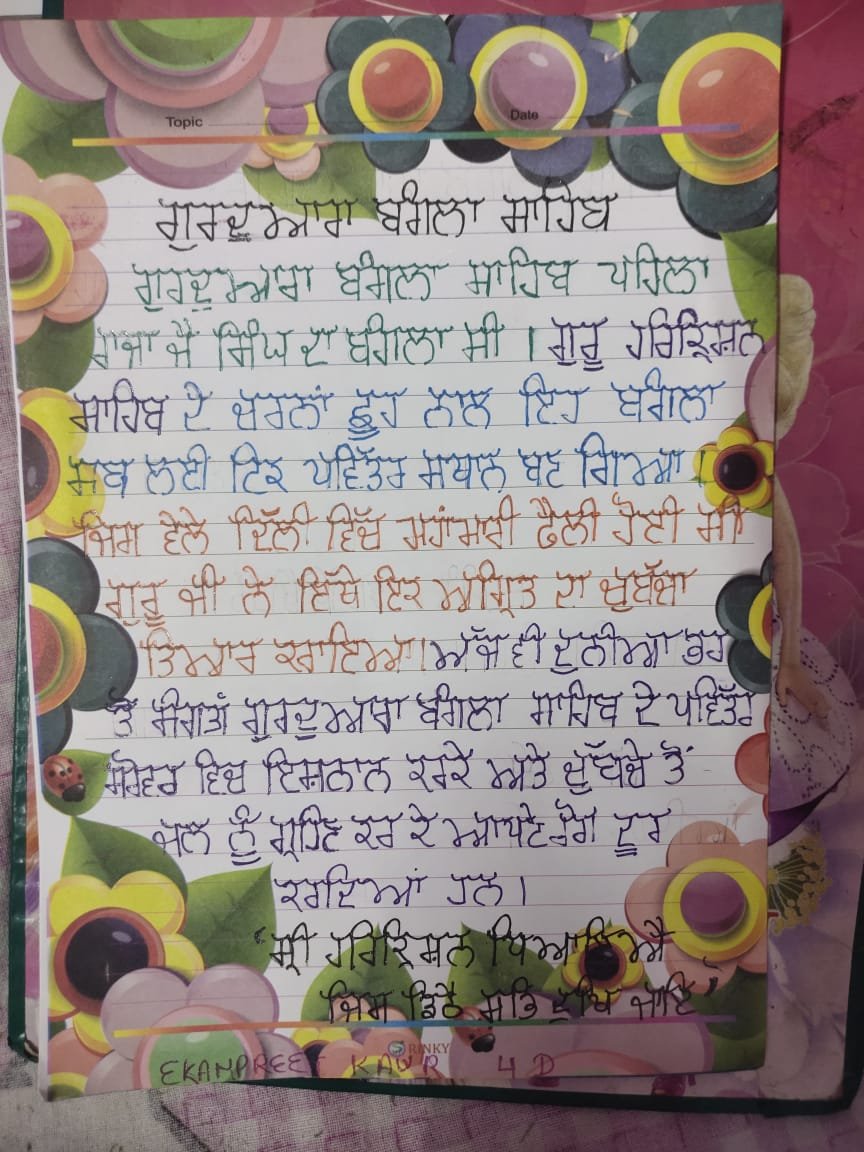 Topic
Date
ਗੁਰਦੁਆਰਾ ਬੰਗਲਾ ਸਾਹਿਬ
ਗੁਰਦੁਆਰਾ ਬੰਗਲਾ ਸਾਹਿਬ ਪਹਿਲਾ
ਰਾਜਾ ਜੈ ਸਿੰਘ ਦਾ ਬੰਗਲਾ ਸੀ । ਗੁਰੂ ਹਰਿਕ੍ਰਿਸ਼ਨ
ਸਾਹਿਬ ਦੇ ਚਰਨਾਂ ਛੂਹ ਨਾਲ ਇਹ ਬੰਗਲਾ
ਸਬ ਲਈ ਇਕ ਪਵਿੱਤਰ ਸਥਾਨ ਬਣ ਗਿਆ ।
ਜਿਸ ਵੇਲੇ ਦਿੱਲੀ ਵਿੱਚ ਮਹਾਂਮਾਰੀ ਫੈਲੀ ਹੋਈ ਸੀ
ਗੁਰੂ ਜੀ ਨੇ ਇੱਥੇ ਇਕ ਅੰਮ੍ਰਿਤ ਦਾ ਚੁਬੱਚਾ
ਤਿਆਰ ਕਰਾਇਆ। ਅੱਜ ਵੀ ਦੁਨੀਆ ਭਰ
ਤੋਂ ਸੰਗਤਾਂ ਗੁਰਦੁਆਰਾ ਬੰਗਲਾ ਸਾਹਿਬ ਦੇ ਪਵਿੱਤਰ
ਸਰੋਵਰ ਵਿਚ ਇਸ਼ਨਾਨ ਕਰਕੇ ਅਤੇ ਚੁੱਬਚੇ ਤੋਂ
ਜਲ ਨੂੰ ਗ੍ਰਹਿਣ ਕਰ ਕੇ ਆਪਣੇ ਰੋਗ ਦੂਰ
ਕਰਦਿਆਂ ਹਨ ।
'ਸ੍ਰੀ ਹਰਿਕ੍ਰਿਸ਼ਨ ਧਿਆਇਐ
ਜਿਸ ਡਿਠੈ ਸਭਿ ਦੁਖਿ ਜਾਇ"
RINKY
EKAMPREET KAUR 4 D